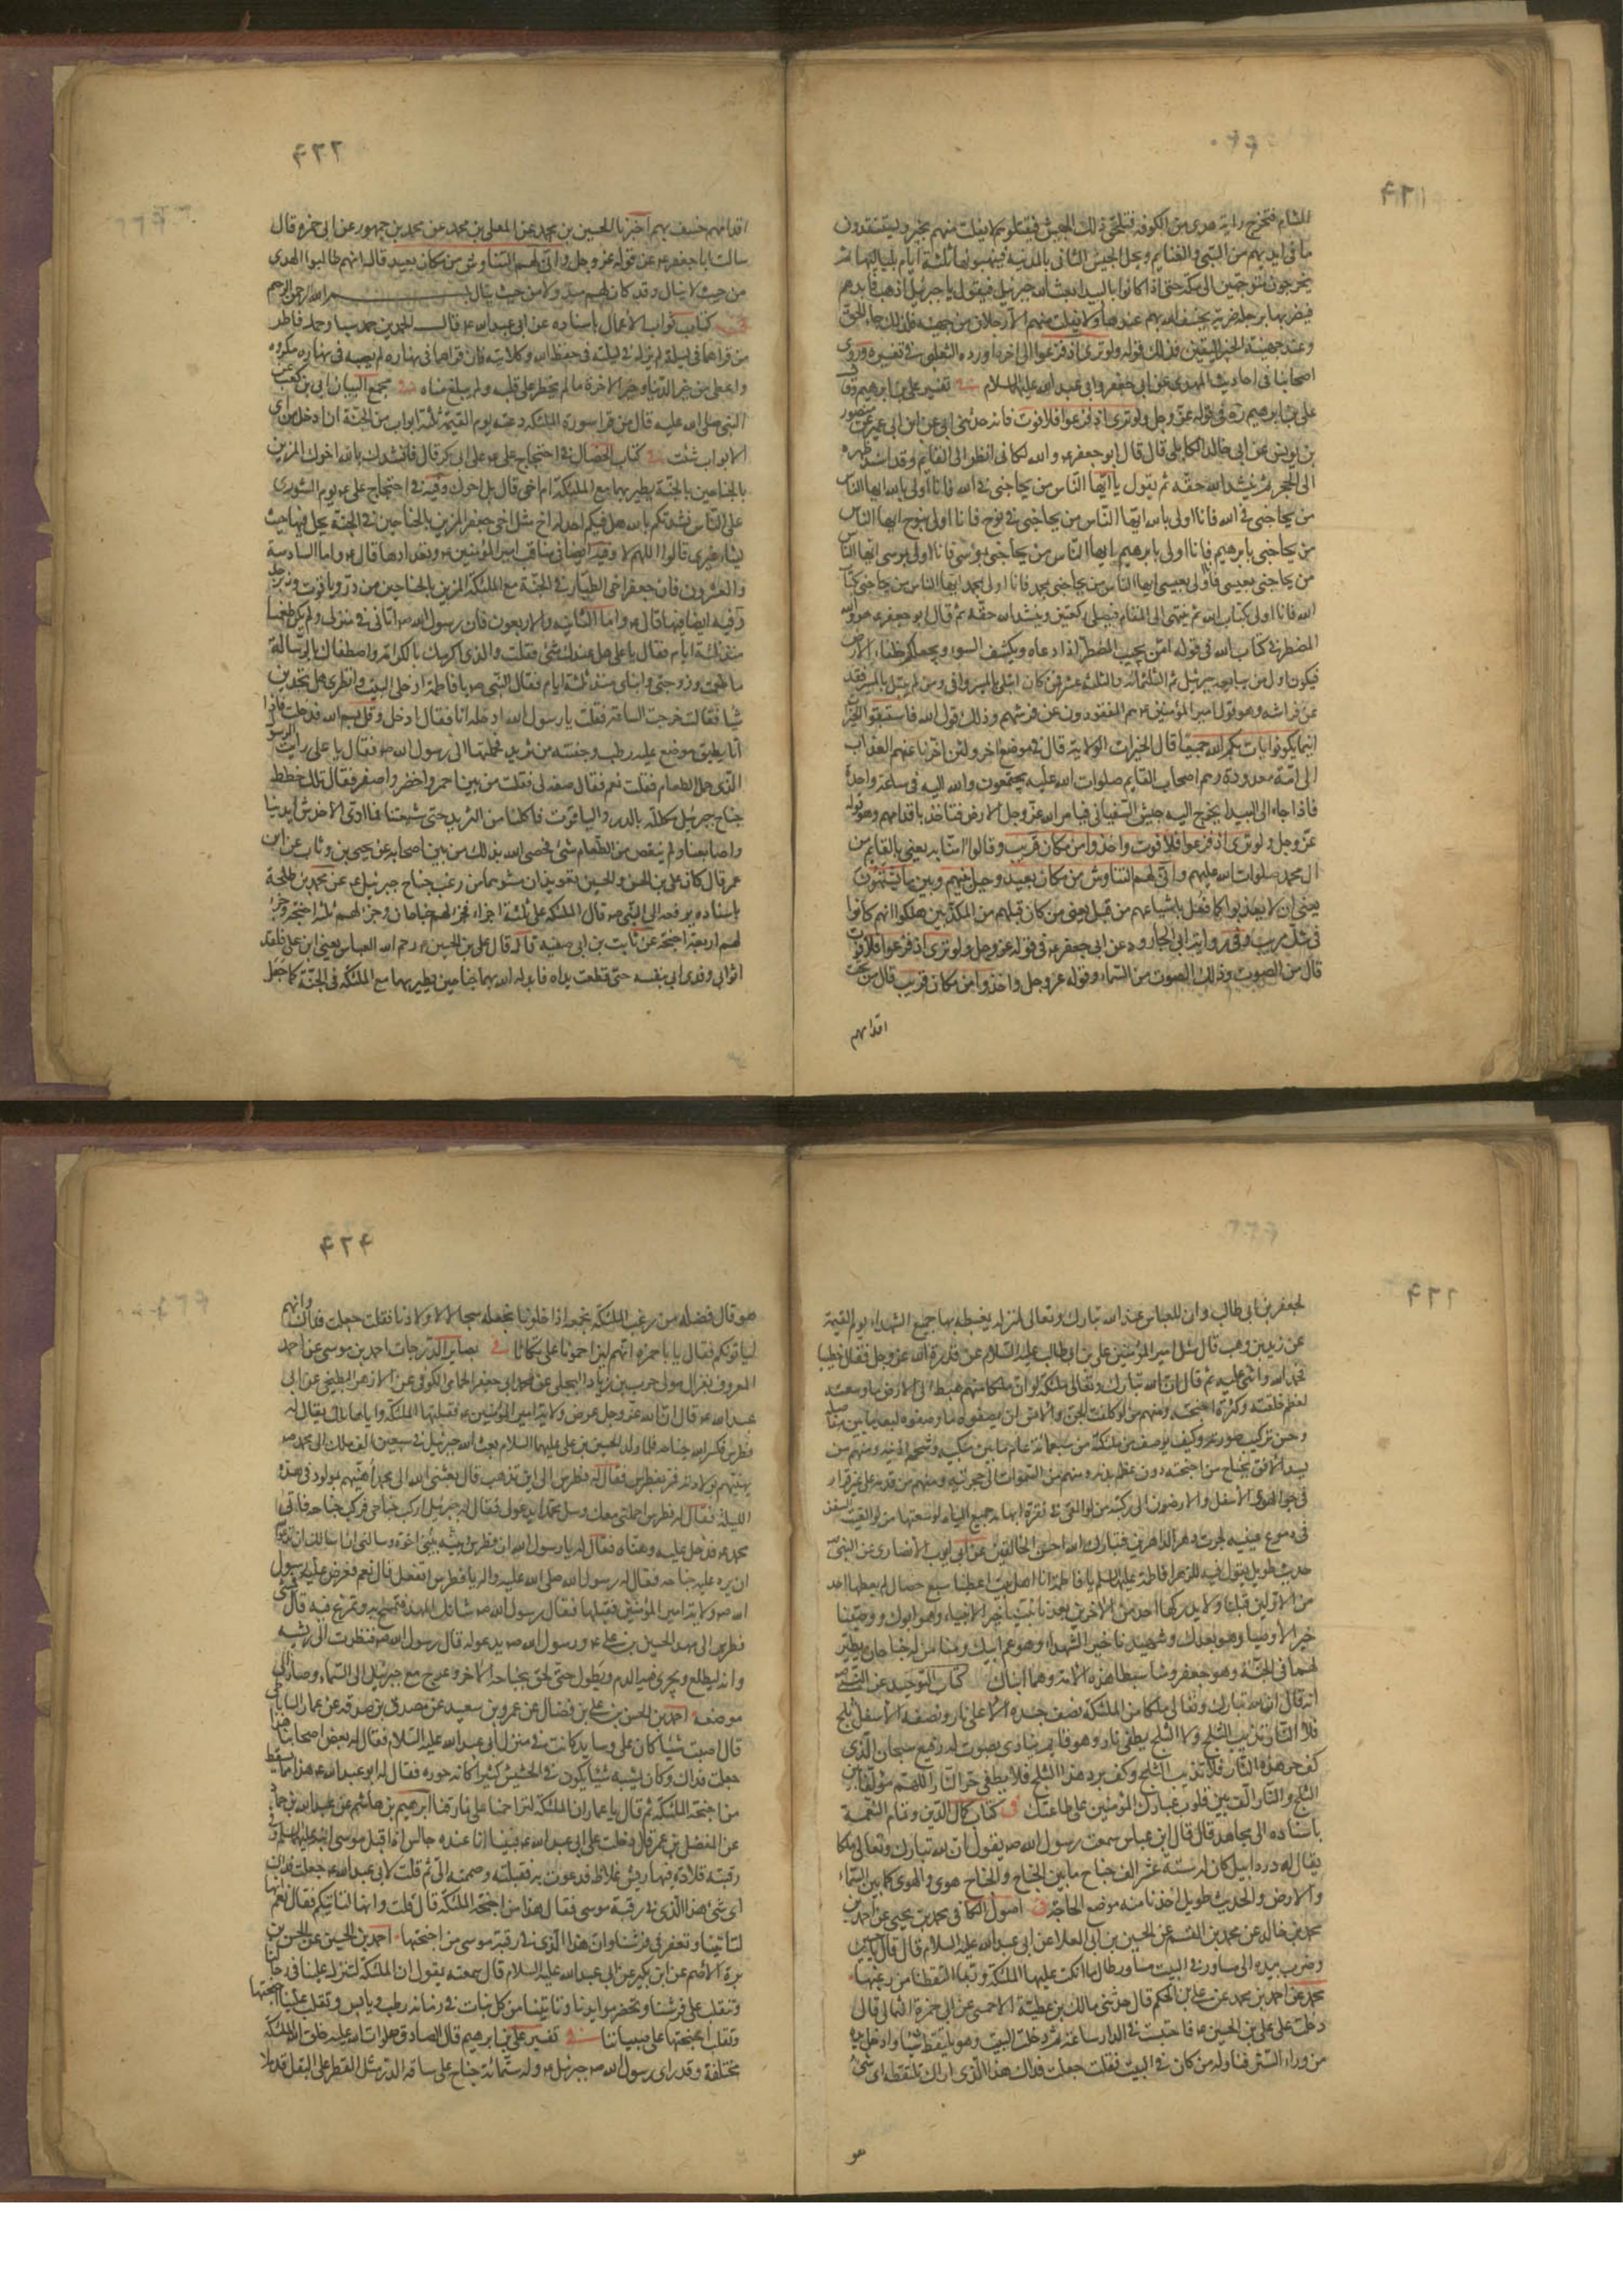 ٤٢١
الشام فتخرج راية هدى من الكوفة فتلحق ذلك الجيش فيقتلونهم لا يفلت منهم مخبر ويستنقذون
ما فى ايديهم من السبى والغنايم ويحل الجيش الثانى بالمدينة فينهبونها ثلثة ايام بلياليها ثم
يخرجون متوجهين الى مكة حتى اذا كانوا بالبيداء بعث الله جبرئيل فيقول يا جبرئيل اذهب فابدهم
فيضربها برجله ضربة يخسف الله بهم عندها ولا يفلت منهم الا رجلان من جهينة فلذلك جاء القول
وعند جهينة الخبر اليقين فذلك قوله ولو ترى اذ فزعوا الى اخره اورده الثعلبى فى تفسيره وروى
اصحابنا فى احاديث المهدى عن ابى جعفر وابى عبد الله عليهما السلام فى تفسير على بن ابراهيم
على بن ابراهيم ره فى قوله عز وجل ولو ترى اذ فزعوا فلا فوت فانه حدثنى ابى عن ابن ابى عمير عن منصور
بن يونس عن ابى خالد الكابلى قال قال ابو جعفر ع والله لكانى انظر الى القايم وقد اسند ظهره
الى الحجر ثم ينشد الله حقه ثم يقول يا ايها الناس من يحاجنى فى الله فانا اولى بالله ايها الناس
من يحاجنى فى الله فانا اولى بالله ايها الناس من يحاجنى فى نوح فانا اولى بنوح ايها الناس
من يحاجنى بابرهيم فانا اولى بابرهيم ايها الناس من يحاجنى بموسى فانا اولى بموسى ايها الناس
من يحاجنى بعيسى فانا اولى بعيسى ايها الناس من يحاجنى بمحمد فانا اولى بمحمد ايها الناس من يحاجنى بكتاب
الله فانا اولى بكتاب الله ثم ينتهى الى المقام فيصلى ركعتين وينشد الله حقه ثم قال ابو جعفر ع هو والله
المضطر فى كتاب الله فى قوله امن يجيب المضطر اذا دعاه ويكشف السوء ويجعلكم خلفاء الارض
فيكون اول من يبايعه جبرئيل ثم الثلثمائة والثلثة عشر فمن كان ابتلى بالمسير وافى ومن لم يبتل بالمسير فقد
عن فراشه وهو قول امير المؤمنين ع هم المفقودون عن فرشهم وذلك قول الله فاستبقوا الخيرات
اينما تكونوا يات بكم الله جميعا قال الخيرات الولاية وقال فى موضع اخر ولئن اخرنا عنهم العذاب
الى امة معدودة وهم اصحاب القايم صلوات الله عليه يجتمعون والله اليه فى ساعة واحدة
فاذا جاء الى البيداء يخرج اليه جيش السفيانى فيامر الله عز وجل الارض فتاخذ باقدامهم وهو قوله
عز وجل ولو ترى اذ فزعوا فلا فوت واخذوا من مكان قريب وقالوا امنا به يعنى بالقايم من
ال محمد صلوات الله عليهم وانى لهم التناوش من مكان بعيد وحيل بينهم وبين ما يشتهون
يعنى ان لا يعذبوا كما فعل باشياعهم من قبل يعنى من كان قبلهم من المكذبين هلكوا انهم كانوا
فى شك مريب وفى رواية ابى الجارود عن ابى جعفر ع فى قوله عز وجل ولو ترى اذ فزعوا فلا فوت
قال من الصوت وذلك الصوت من السماء وقوله عز وجل واخذوا من مكان قريب قال من تحت
اقدامهم
٤٢٢
اقدامهم خسف بهم اخبرنا الحسين بن محمد عن المعلى بن محمد عن محمد بن جمهور عن ابى حمزة قال
سالت ابا جعفر ع عن قوله عز وجل وانى لهم التناوش من مكان بعيد قال انهم طالبوا الهدى
من حيث لا ينال وقد كان لهم مبذولا من حيث ينال بسم الله الرحمن الرحيم
فى كتاب ثواب الاعمال باسناده عن ابى عبد الله ع قال الحمدين حمد سبا وحمد فاطر
من قراهما فى ليلة لم يزل فى ليلته فى حفظ الله وكلائته فان قراهما فى نهاره لم يصبه فى نهاره مكروه
واعطى من خير الدنيا وخير الاخرة ما لم يخطر على قلبه ولم يبلغ مناه فى مجمع البيان ابى بن كعب عن
النبى صلى الله عليه قال من قرا سورة الملئكة دعته يوم القيمة ثلثة ابواب من الجنة ان ادخل من اى
الابواب شئت فى كتاب الخصال فى احتجاج على ع على ابى بكر قال فانشدك بالله اخوك المزين
بالجناحين بالجنة يطير بهما مع الملئكة ام اخى قال بل اخوك وفيه فى احتجاج على ع يوم الشورى
على الناس نشدتكم بالله هل فيكم احد له اخ مثل اخى جعفر المزين بالجناحين فى الجنة يحل فيها حيث
يشاء غيرى قالوا اللهم لا وفيه ايضا فى مناقب امير المؤمنين ع وتعدادها قال ع واما السادسة
والعشرون فان جعفر اخى الطيار فى الجنة مع الملئكة المزين بالجناحين من در وياقوت وزبرجد
وفيه ايضا فيها قال ع واما الثانية والاربعون فان رسول الله ص اتانى فى منزلى ولم يكن طعمنا
منذ ثلثة ايام فقال يا على هل عندك شئ فقلت والذى اكرمك بالكرامة واصطفاك بالرسالة
ما طعمت وزوجتى وابناى منذ ثلثة ايام فقال النبى ص يا فاطمة ادخلى البيت وانظرى هل تجدين
شيا فقالت خرجت الساعة فقلت يا رسول الله ادخله انا فقال ادخل وقل بسم الله فدخلت فاذا
انا بطبق موضوع عليه رطب وجفنة من ثريد فحملتها الى رسول الله ص فقال يا على رايت الرسول
الذى حمل الطعام فقلت نعم فقال صفه لى فقلت من بين احمر واخضر واصفر فقال تلك خطط
جناح جبرئيل مكللة بالدر والياقوت فاكلنا من الثريد حتى شبعنا فما راى الا خدش ايدينا
واصابعنا ولم ينقص من الطعام شئ فخصنى الله بذلك من بين اصحابه عن يحيى بن وثاب عن ابن
عمر قال كان على بن الحسن والحسين تعويذان حشوهما من زغب جناح جبرئيل ع عن محمد بن طلحة
باسناده يرفعه الى النبى ص قال الملئكة على ثلثة اجزاء فجزء لهم جناحان وجزء لهم ثلثة اجنحة وجزء
لهم اربعة اجنحة عن ثابت بن ابى صفية قال قال على بن الحسين ع رحم الله العباس يعنى ابن على فلقد
اثر وابلى وفدى اخاه بنفسه حتى قطعت يداه فابدله الله بهما جناحين يطير بهما مع الملئكة فى الجنة كما جعل
٤٢٣
لجعفر بن ابى طالب وان للعباس عند الله تبارك وتعالى لمنزلة يغبطه بها جميع الشهداء يوم القيمة
عن زيد بن وهب قال سئل امير المؤمنين على بن ابى طالب عليه السلام عن قدرة الله عز وجل فقام خطيبا
فحمد الله واثنى عليه ثم قال ان الله تبارك وتعالى ملئكة لو ان ملكا منهم هبط الى الارض ما وسعته
لعظم خلقته وكثرة اجنحته ومنهم من لو كلفت الجن والانس ان يصفوه ما وصفوه لبعد ما بين مفاصله
وحسن تركيب صورته وكيف يوصف من ملئكته من سبعمائة عام ما بين منكبيه وشحمة اذنيه ومنهم من
يسد الافق بجناح من اجنحته دون عظم بدنه ومنهم من السموات الى حجزته ومنهم من قدمه على غير قرار
فى جو الهوى الاسفل والارضون الى ركبتيه ومنهم من لو القى فى نقرة ابهامه جميع المياه لوسعتها ومنهم من لو القيت السفن
فى دموع عينيه لجرت دهر الداهرين فتبارك الله احسن الخالقين عن ابى ايوب الانصارى عن النبى ص
حديث طويل يقول فيه للزهرا فاطمة عليها السلام يا فاطمة انا اهل بيت اعطينا سبع خصال لم يعطها احد
من الاولين قبلنا ولا يدركها احد من الاخرين بعدنا نبينا خير الانبياء وهو ابوك ووصينا
خير الاوصياء وهو بعلك وشهيدنا خير الشهداء وهو عم ابيك ومنا من له جناحان يطير
بهما فى الجنة وهو جعفر ومنا سبطا هذه الامة وهما ابناك كتاب التوحيد عن النبى ص
انه قال ان لله تبارك وتعالى ملكا من الملئكة نصف جسده الاعلى نار ونصفه الاسفل ثلج
فلا النار تذيب الثلج ولا الثلج يطفى النار وهو قائم ينادى بصوت له رفيع سبحان الذى
كف حر هذه النار فلا تذيب الثلج وكف برد هذا الثلج فلا يطفى حر النار اللهم مؤلفا بين
الثلج والنار الف بين قلوب عبادك المؤمنين على طاعتك فى كتاب كمال الدين وتمام النعمة
باسناده الى مجاهد قال قال ابن عباس سمعت رسول الله ص يقول ان لله تبارك وتعالى ملكا
يقال له دردائيل كان له ستة عشر الف جناح ما بين الجناح والجناح هوى والهوى كما بين السماء
والارض والحديث طويل اخذنا منه موضع الحاجة فى اصول الكافى محمد بن يحيى عن احمد بن
محمد بن خالد عن محمد بن القسم عن الحسين بن ابى العلا عن ابى عبد الله عليه السلام قال قال يا حسين
وضرب بيده الى مساور فى البيت مساور طال ما اتكت عليها الملئكة وربما التقطنا من زغبها
محمد عن احمد بن محمد عن على بن الحكم قال حدثنى مالك بن عطية الاحمسى عن ابى حمزة الثمالى قال
دخلت على على بن الحسين ع فاحتبست فى الدار ساعة ثم دخلت البيت وهو يلتقط شيئا وادخل يده
من وراء الستر فناوله من كان فى البيت فقلت جعلت فداك هذا الذى اراك تلتقطه اى شئ
هو
٤٢٤
هو قال فضلة من زغب الملئكة نجمعه اذا خلونا نجعله سبحا لاولادنا فقلت جعلت فداك وانهم
لياتونكم فقال يا با حمزة انهم ليزاحمونا على تكاتنا فى بصاير الدرجات احمد بن موسى عن احمد
المعروف بغزال مولى حرب بن زياد البجلى عن محمد ابى جعفر الحمامى الكوفى عن الازهر البطيخى عن ابى
عبد الله ع قال ان الله عز وجل عرض ولاية امير المؤمنين ع فقبلها الملئكة واباها ملك يقال له
فطرس فكسر الله جناحه فلما ولد الحسين بن على عليهما السلام بعث الله جبرئيل فى سبعين الف ملك الى محمد ص
يهنئهم بولادته فمر بفطرس فقال له فطرس الى اين تذهب قال بعثنى الله الى محمد اهنيهم بمولود فى هذه
الليلة فقال له فطرس احملنى معك وسل محمدا يدعو لى فقال له جبرئيل اركب جناحى فركب جناحه فاتى
محمد ص فدخل عليه وهناه فقال له يا رسول الله ان فطرس بينى وبينه اخوة وسالنى ان اسالك ان تدعو الله
ان يرد عليه جناحه فقال رسول الله صلى الله عليه واله يا فطرس اتفعل قال نعم فعرض عليه رسول
الله ص ولاية امير المؤمنين فقبلها فقال رسول الله ص شانك المهد فتمسح به وتمرغ فيه قال
فطرس الى مهد الحسين بن على ع ورسول الله ص يدعو له قال رسول الله ص فنظرت الى ريشه
وانه ليطلع ويجرى فيه الدم ويطول حتى لحق بجناحه الاخر وعرج مع جبرئيل الى السماء وصار الى
موضعه احمد بن الحسن بن على بن فضال عن عمرو بن سعيد عن مصدق بن صدقة عن عمار الساباطى
قال اصبت شيئا كان على وسايد كانت فى منزل ابى عبد الله عليه السلام فقال له بعض اصحابنا ما هذا
جعلت فداك وكان يشبه شيئا يكون فى الحشيش كثيرا كانه خرزة فقال له ابو عبد الله ع هذا مما يسقط
من اجنحة الملئكة ثم قال يا عمار ان الملئكة لتزاحمنا على نمارقنا ابرهيم بن هاشم عن عبد الله بن حماد
عن المفضل بن عمر قال دخلت على ابى عبد الله ع فبينا انا عنده جالس اذ اقبل موسى ابنه عليهما السلام وفى
رقبته قلادة فيها ريش غلاظ فدعوت به فقبلته وضممته الى ثم قلت لابى عبد الله ع جعلت فداك
اى شئ هذا الذى فى رقبة موسى فقال هذا من اجنحة الملئكة قال قلت وانها لتاتيكم فقال نعم انها
لتاتينا وتعفر فى فرشنا وان هذا الذى فى رقبة موسى من اجنحتها احمد بن الحسين عن الحسن بن
برة الاصم عن ابن بكير عن ابى عبد الله عليه السلام قال سمعته يقول ان الملئكة لتنزل علينا فى رحالنا
وتتقلب على فرشنا وتحضر موايدنا وتاتينا من كل نبات فى زمانه رطب ويابس وتقلب علينا اجنحتها
وتقلب اجنحتها على صبياننا فى تفسير على بن ابراهيم قال الصادق صلوات الله عليه خلق الله الملئكة
مختلفة وقد راى رسول الله ص جبرئيل ع وله ستمائة جناح على ساقه الدر مثل القطر على البقل قد ملا